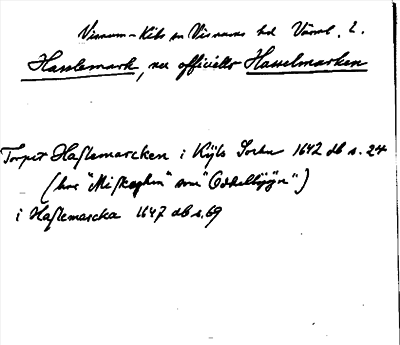 Visnum-Kils sn Visnums hd Värml. l.
Hasslemark, nu officiellt Hasselmarken
Torpet Haßlemarcken i Kijls Sochn 1642 db s. 24
(hos "Mißkoghen" som "Odhelbijgn")
i Haßlemarcka 1647 db s. 69